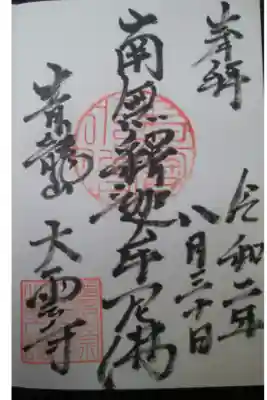 奉拝
令和二年
八月三十日
南無釈迦牟尼佛
青龍山
大雲寺